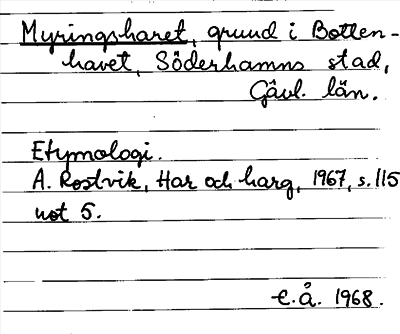 Myringsharet, grund i Botten-
havet, Söderhamns stad,
Gävl. län.
Etymologi.
A. Rostvik, Har och harg, 1967, s. 115
not 5.
E.Å. 1968.